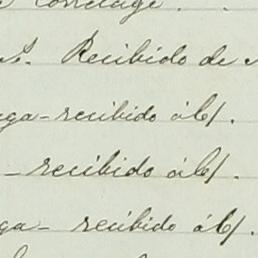 corretage . .
S. Recibido de
ga - recibido á c/.
- recibido á c/.
ga - recibido á c/.